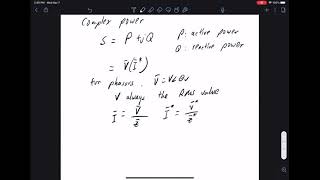 Complex power
S = P + jQ P: active power
Q: reactive power
= V̄(Ī*)
for phasors.. V̄ = V∠θv
V always the RMS value
Ī = V̄/Z̄ Ī* = V̄*/Z̄*